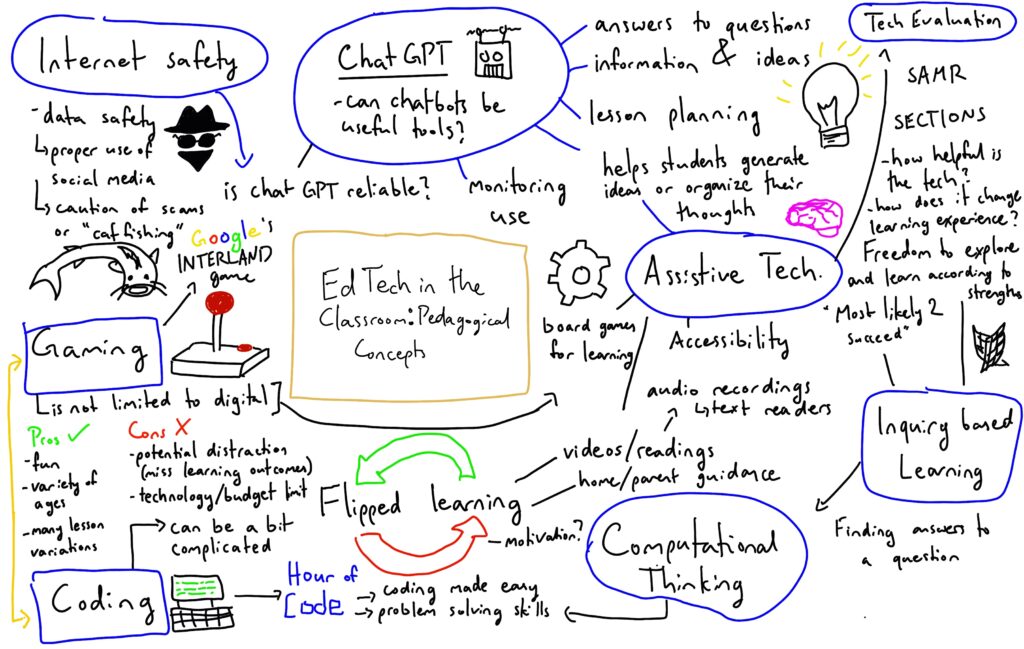 Internet safety
-data safety
↳proper use of
social media
↳caution of scams
or "cat fishing"
Chat GPT
-can chatbots be
useful tools?
is chat GPT reliable?
Monitoring
use
answers to questions
information & ideas
lesson planning
helps students generate
ideas or organize their
thoughts
Tech Evaluation
SAMR
SECTIONS
-how helpful is
the tech?
-how does it change
learning experience?
Freedom to explore
and learn according to
strengths
"Most likely 2
succeed"
Google's
INTERLAND
game
Ed Tech in the
Classroom: Pedagogical
Concepts
Assistive Tech.
board games
for learning
Accessibility
audio recordings
↳text readers
Gaming
[is not limited to digital]
Pros ✓
-fun
-variety of
ages
-many lesson
variations
Cons X
-potential distraction
(miss learning outcomes)
-technology/budget limit
Flipped learning
videos/readings
home/parent guidance
-motivation?
Inquiry based
Learning
Finding answers to
a question
Computational
Thinking
can be a bit
complicated
Coding
Hour of
Code
→coding made easy
→problem solving skills